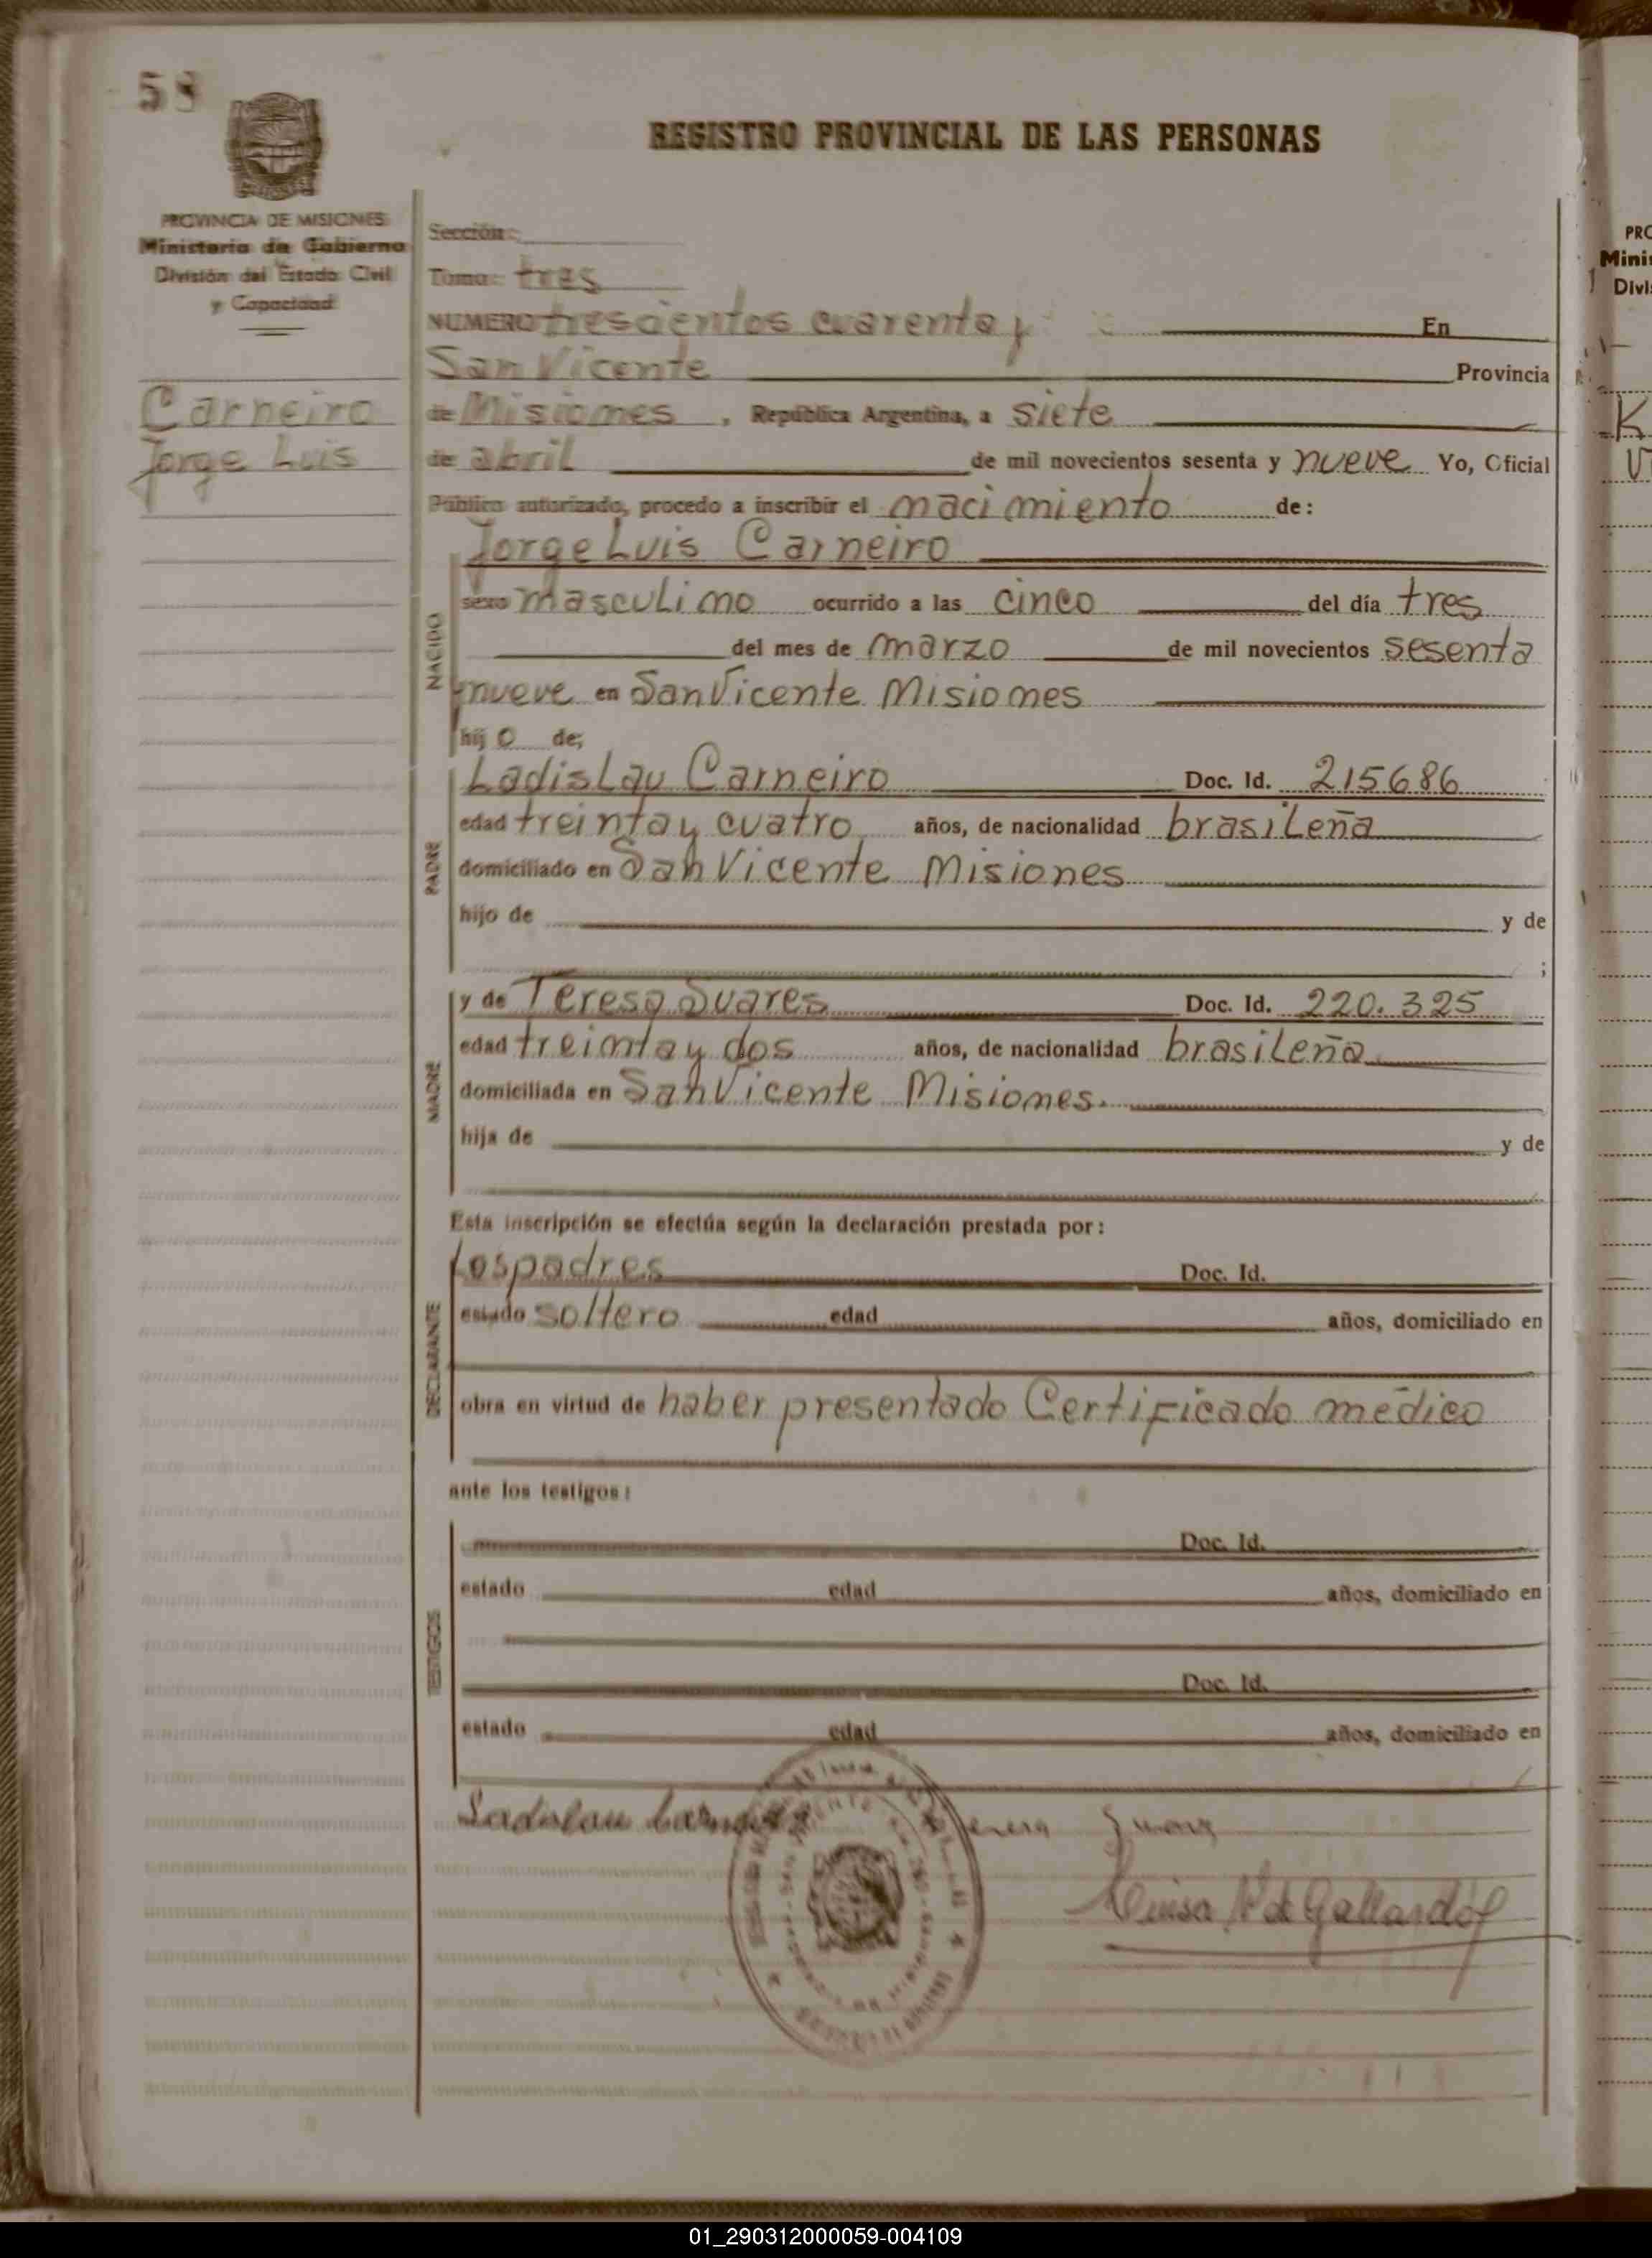 58
REGISTRO PROVINCIAL DE LAS PERSONAS
PROVINCIA DE MISIONES
Ministerio de Gobierno
División del Estado Civil
y Capacidad
Carneiro
Jorge Luis
Sección:
Tomo: tres
NUMERO trescientos cuarenta y En
San Vicente Provincia
de Misiones, República Argentina, a siete
de abril de mil novecientos sesenta y nueve Yo, Oficial
Público autorizado, procedo a inscribir el nacimiento de:
NACIDO
Jorge Luis Carneiro
sexo masculino ocurrido a las cinco del día tres
del mes de marzo de mil novecientos sesenta
y nueve en San Vicente Misiones
hijo de;
PADRE
Ladislau Carneiro Doc. Id. 215686
edad treinta y cuatro años, de nacionalidad brasileña
domiciliado en San Vicente Misiones
hijo de y de
;
MADRE
y de Teresa Suares Doc. Id. 220.325
edad treinta y dos años, de nacionalidad brasileña
domiciliada en San Vicente Misiones.
hija de y de
Esta inscripción se efectúa según la declaración prestada por:
DECLARANTE
los padres Doc. Id.
estado soltero edad años, domiciliado en
obra en virtud de haber presentado Certificado médico
ante los testigos:
TESTIGOS
Doc. Id.
estado edad años, domiciliado en
Doc. Id.
estado edad años, domiciliado en
Ladislau Carneiro Teresa Suares
Luisa de Gallardo
PRO
Minis
Divis
01_290312000059-004109